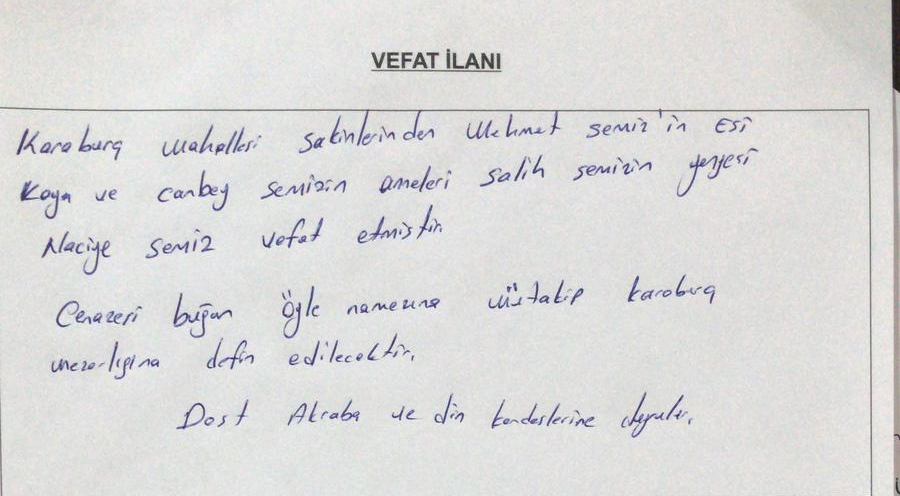 VEFAT İLANI
Karaburç Mahallesi Sakinlerinden Mehmet Semiz'in Eşi
Kaya ve canbey semizin anneleri salih semizin yengesi
Naciye Semiz vefat etmiştir.
Cenazesi bugün Öğle namazına müstakip karaburç
mezarlığına defin edilecektir.
Dost Akraba ve din kardeşlerine duyrulur.